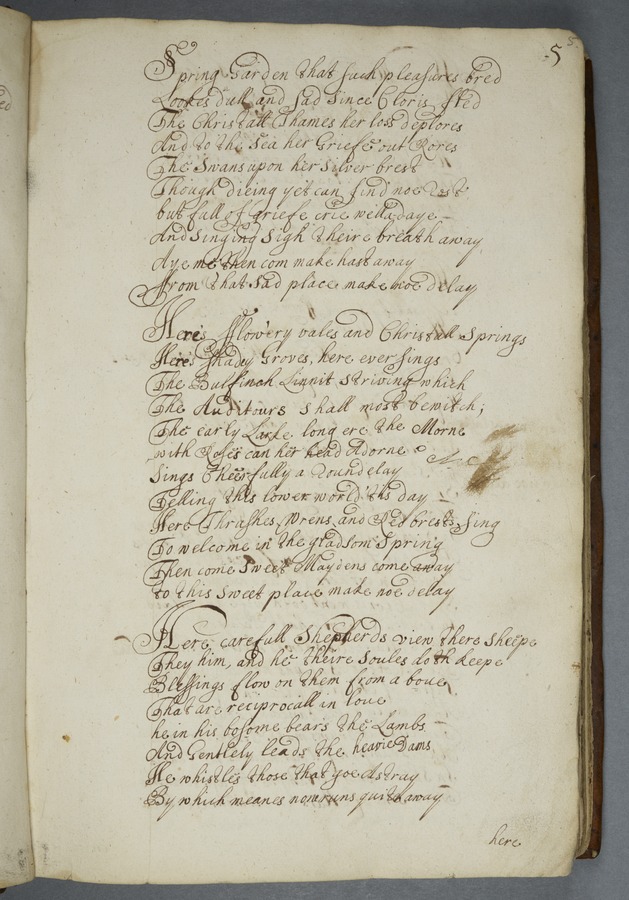 5
Spring Garden that such pleasures bred
Lookes dull and sad since Cloris fled
The Christall Thames her loss deplores
And to the Sea her Griefe out Rores
The Swans upon her silver brest
Though dieing yet can find noe Rest
but full of griefe crie welladaye
And singing sigh theire breath away
Aye me then com make hast away
ffrom that sad place make noe delay
Here's fflowery vales and Christell Springs
Here's shady Groves, here ever sings
The Bulfinch Linnit striving which
The Auditours shall most bewitch;
The early Larke long ere the Morne
with Roses can her head Adorne
Sings Cheerfully a Roundelay
Telling this lower world 'tis day
Here Thrushes, Wrens, and Red brests sing
To welcome in the gladsom Spring
Then come Sweet Maydens come away
to this sweet place make noe delay
Here, carefull Shepherds view there sheepe
They him, and he theire soules doth keepe
Blessings flow on them from a boue
That are reciprocall in loue
he in his bosome bears the Lambs
And Gentlely leads the heavie Dams
He whistles those that goe Astray
By which meanes non runs quite away
here